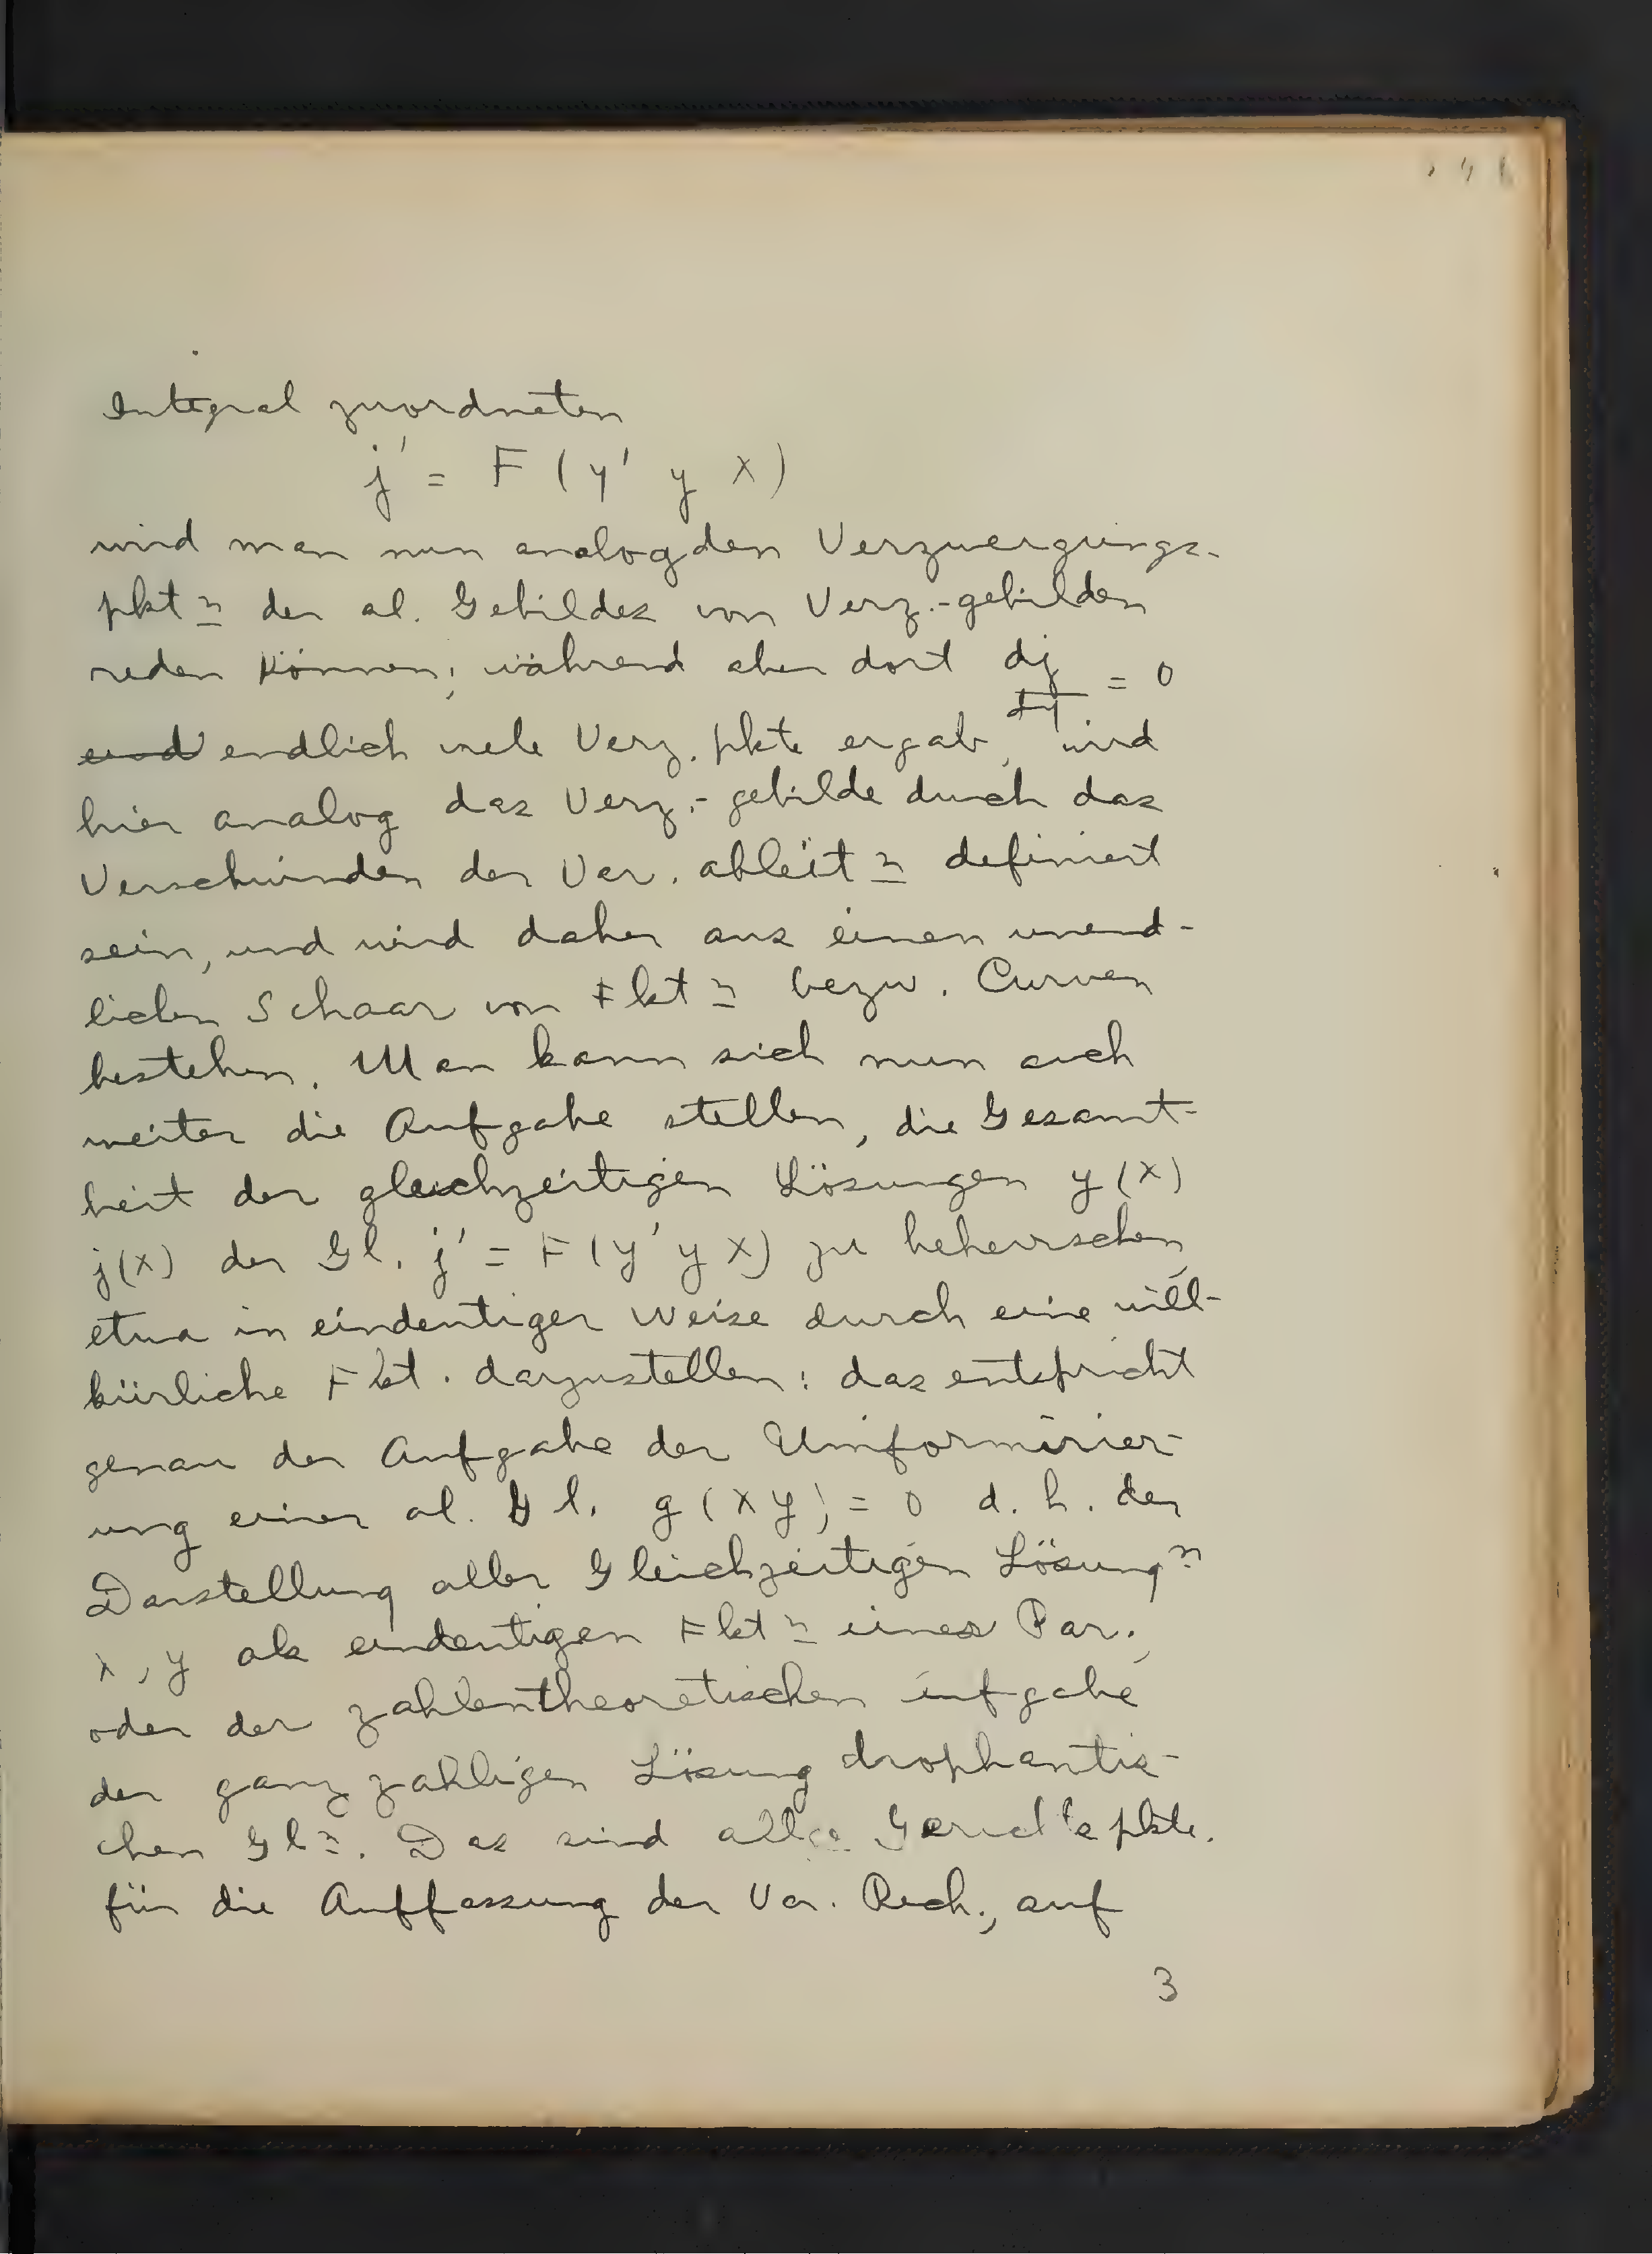 Integral zuordneten
j' = F (y' y x)
wird man nun analog den Verzweigungs-
pkt n der al. Gebildes von Verz.-gebilden
reden können; während aber dort dj/dy = 0
und endlich viele Verz. pkte ergab, wird
hier analog das Verz.-gebilde durch das
Verschwinden der Var. ableit n definiert
sein, und wird daher aus einen unend-
lichen Schaar von Fkt n bezw. Curven
bestehen. Man kann sich nun auch
weiter die Aufgabe stellen, die Gesamt-
heit der gleichzeitigen Lösungen y(x)
j(x) der Gl. j' = F(y' y x) zu beherrschen,
etwa in eindeutiger Weise durch eine will-
kürliche Fkt. darzustellen: das entspricht
genau der Aufgabe der Uniformisier-
ung einer al. Gl. g(xy) = 0 d. h. der
Darstellung aller Gleichzeitigen Lösung n
x, y als eindeutigen Fkt n eines Par.,
oder der zahlentheoretischen Aufgabe
der ganzzahligen Lösung diophantis-
chen Gl n. Das sind alles Gesichtspkte.
für die Auffassung der Var. Rech., auf
3